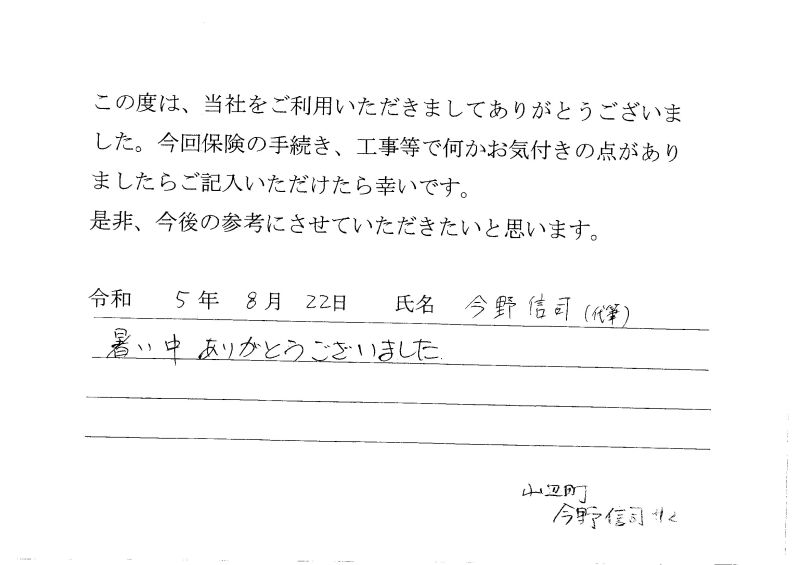 この度は、当社をご利用いただきましてありがとうございま
した。今回保険の手続き、工事等で何かお気付きの点があり
ましたらご記入いただけたら幸いです。
是非、今後の参考にさせていただきたいと思います。
令和 5年 8月 22日 氏名 今野信司(代筆)
暑い中 ありがとうございました.
山辺町
今野信司